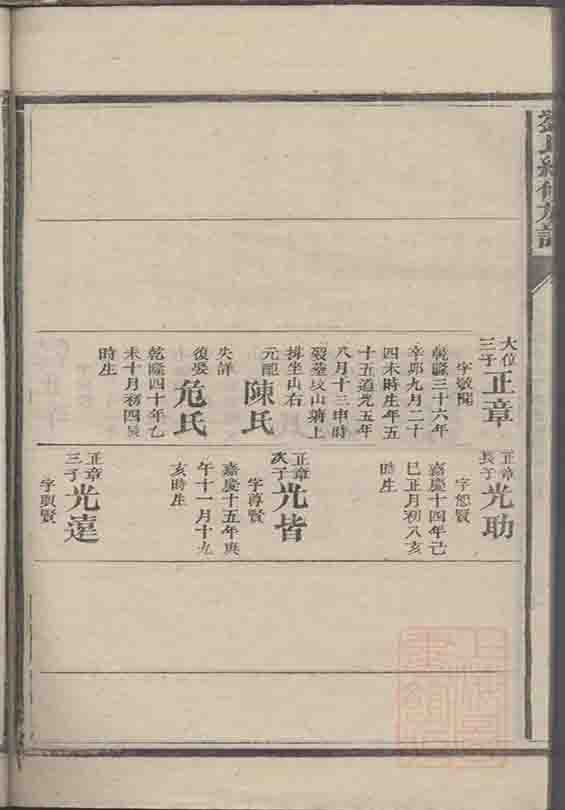 劉氏續修族譜
大位
三子
正章
字敬開
乾隆三十六年
辛卯九月二十
四未時生年五
十五道光五年
八月十三申時
歿塟坟山塘上
排坐山右
元配
陳氏
失詳
復娶
危氏
乾隆四十年乙
未十月初四辰
時生
正章
長子
光助
字恕賢
嘉慶十四年己
巳正月初八亥
時生
正章
次子
光皆
字尊賢
嘉慶十五年庚
午十一月十九
亥時生
正章
三子
光遠
賢
上海圖
書館